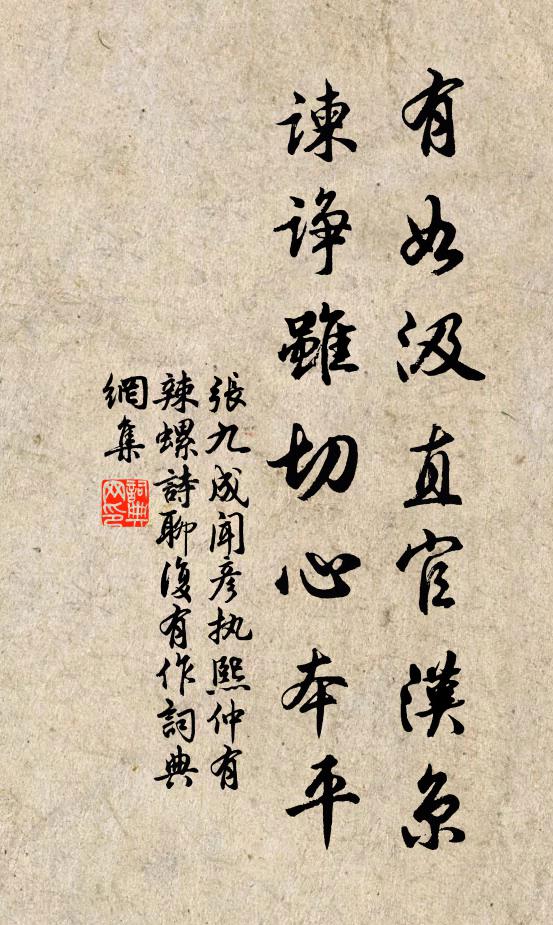 有如汲直官漢京
諫諍雖切心本平
張九成闻彦执熙仲有
辣螺詩聊復有作詞典
網集
詞典
网印